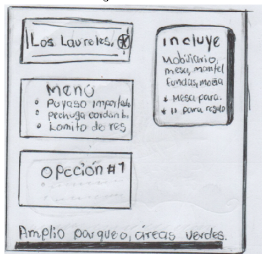 Los Laureles,
Menú
• Puyaso importado
• Pechuga cordon b.
• Lomito de res
Opcción #1
incluye
Mobiliario,
mesa, mantel
fundas, mesa
• Mesa para.
• " para regalo
Amplio parqueo, áreas verdes.